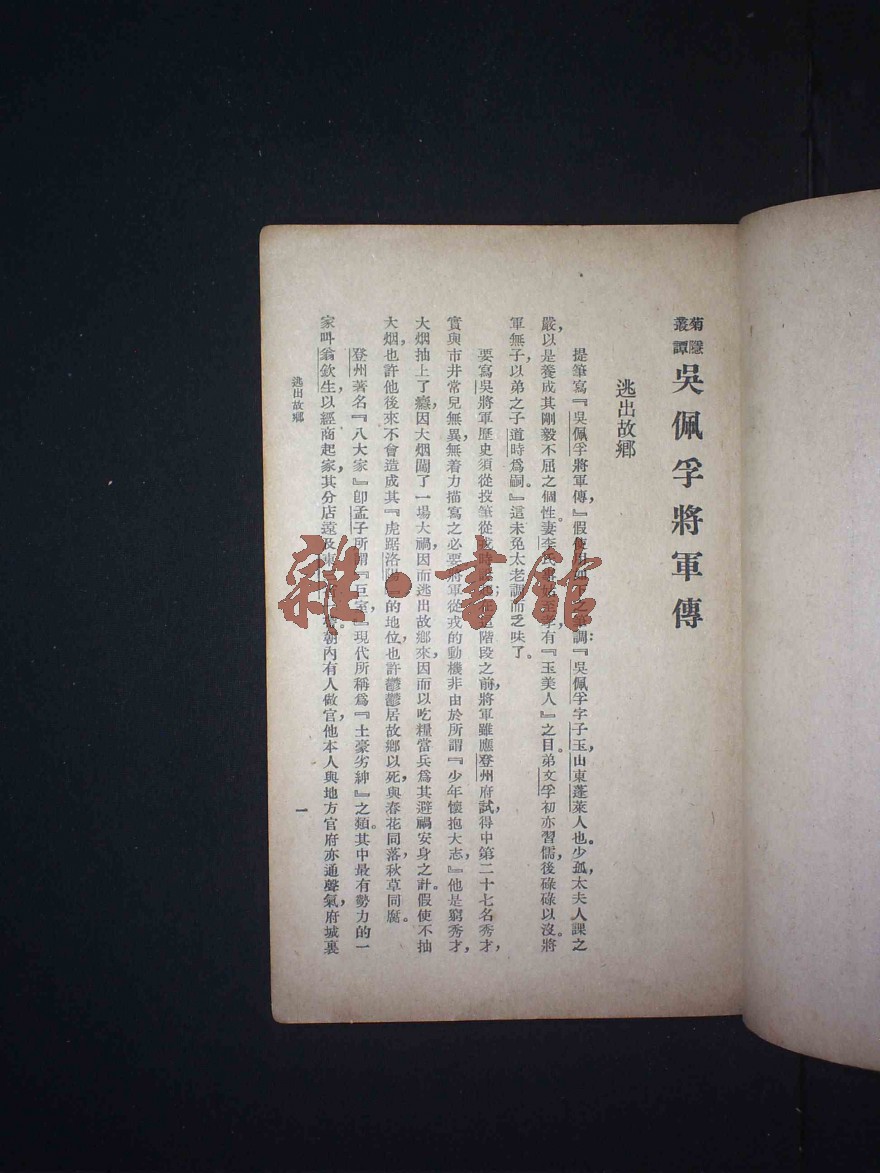 菊隱叢譚
吳佩孚將軍傳
逃出故鄉
提筆寫『吳佩孚將軍傳，』假使調：『吳佩孚字子玉，山東蓬萊人也。少孤，太夫人課之
嚴，以是養成其剛毅不屈之個性。妻李氏有『玉美人』之目。弟文孚初亦習儒，後碌碌以沒。將
軍無子，以弟之子道時爲嗣。』這未免太老調而乏味了。
要寫吳將軍歷史須從投筆從戎時階段之前，將軍雖應登州府試，得中第二十七名秀才，
實與市井常兒無異，無着力描寫之必要。將軍從戎的動機非由於所謂『少年懷抱大志，』他是窮秀才，
大烟抽上了癮，因大烟闖了一場大禍，因而逃出故鄉來，因而以吃糧當兵爲其避禍安身之計。假使不抽
大烟，也許他後來不會造成其『虎踞洛陽』的地位，也許鬱鬱居故鄉以死，與春花同落，秋草同腐。
登州著名『八大家』卽孟子所謂『巨室，』現代所稱爲『土豪劣紳』之類。其中最有勢力的一
家叫翁欽生，以經商起家，其分店遠及東朝內有人做官，他本人與地方官府亦通聲氣，府城裏
逃出故鄉
一
雜·書館